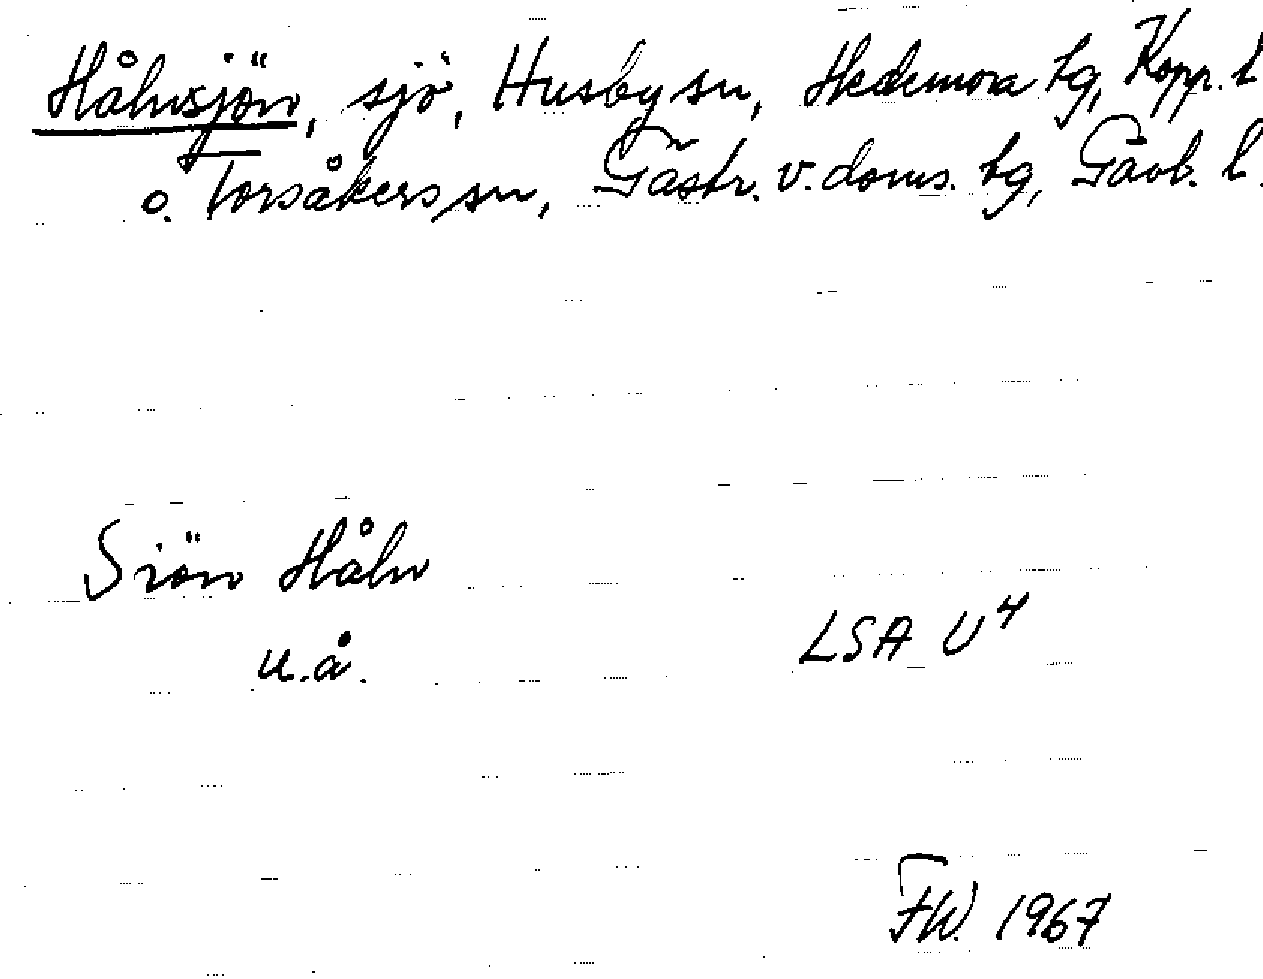 Hålnsjön, sjö, Husby sn, Hedemora tg, Kopp. l
o. Torsåkers sn, Gästr. v. doms. tg, Gävl. l.
Siön Håln
u.å.
LSA U4
FW. 1967